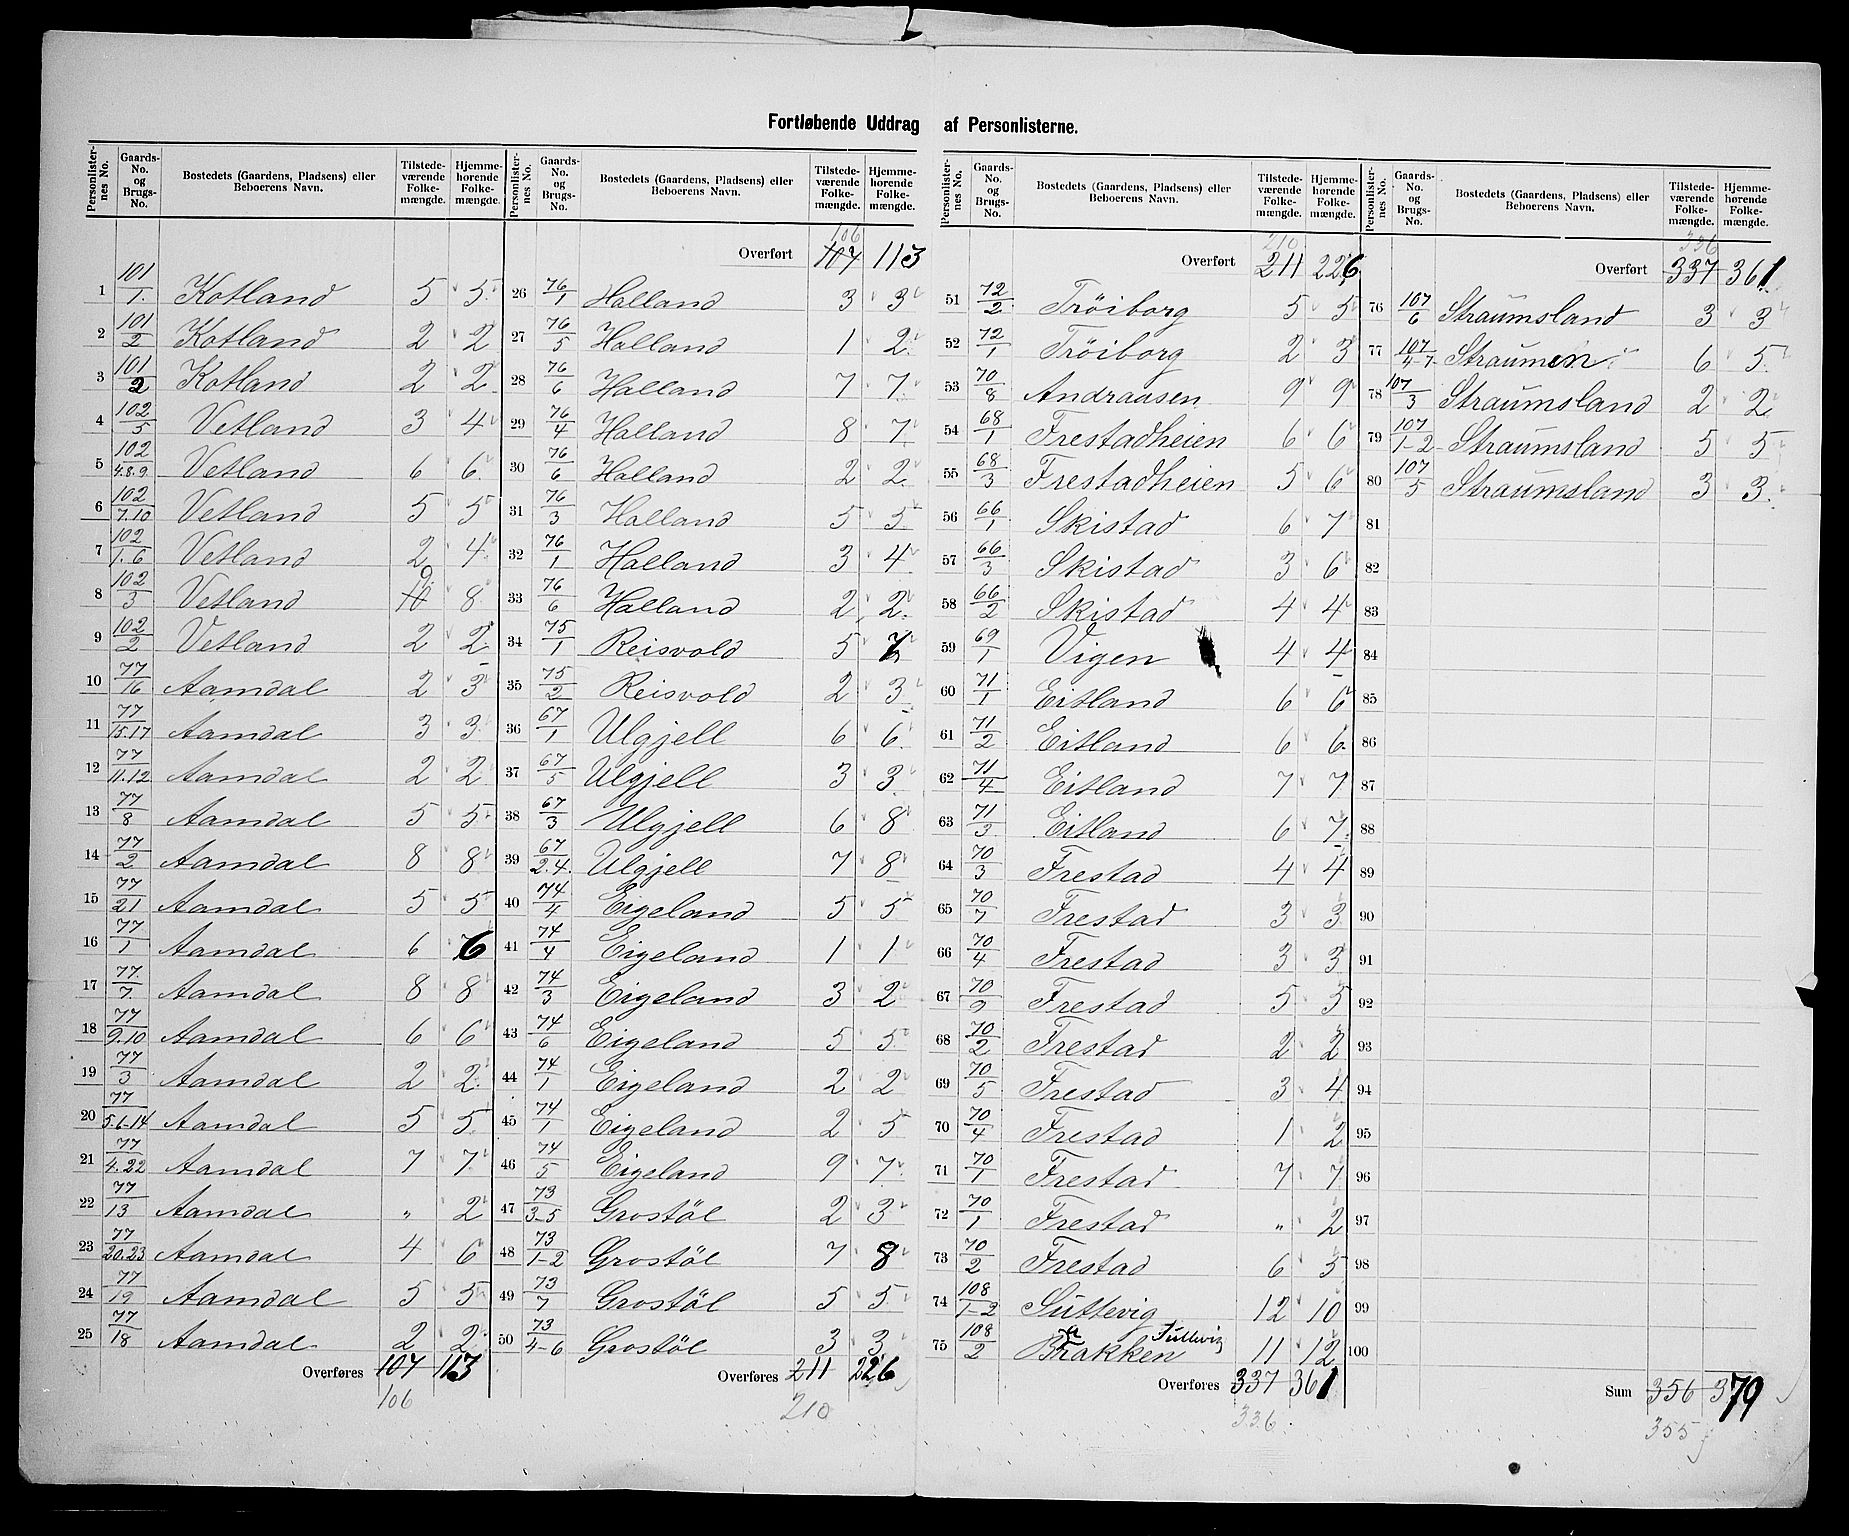 Fortløbende Uddrag af Personlisterne.
Personlisternes No. | Gaards-No. og Brugs-No. | Bostedets (Gaardens, Pladsens) eller Beboerens Navn. | Tilstedeværende Folkemængde. | Hjemmehørende Folkemængde.
1 101/1. Kotland 5 5
2 101/2 Kotland 2 2
3 101/2 Kotland 2 2
4 102/5 Vetland 3 4
5 102/4.8.9. Vetland 6 6
6 102/7.10 Vetland 5 5
7 102/1.6 Vetland 2 4
8 102/3 Vetland 10 9 8
9 102/2 Vetland 2 2
10 77/16 Aamdal 2 3
11 77/15.17 Aamdal 3 3
12 77/11.12 Aamdal 2 2
13 77/8 Aamdal 5 5
14 77/2 Aamdal 8 8
15 77/21 Aamdal 5 5
16 77/1 Aamdal 6 6
17 77/7. Aamdal 8 8
18 77/9.10 Aamdal 6 6
19 77/3 Aamdal 2 2
20 77/5.6-14 Aamdal 5 5
21 77/4.22 Aamdal 7 7
22 77/13 Aamdal " 2
23 77/20.23 Aamdal 4 6
24 77/19 Aamdal 5 5
25 77/18 Aamdal 2 2
Overføres 107 113
106
Personlisternes No. | Gaards-No. og Brugs-No. | Bostedets (Gaardens, Pladsens) eller Beboerens Navn. | Tilstedeværende Folkemængde. | Hjemmehørende Folkemængde.
106
Overført 107 113
26 76/1 Halland 3 3
27 76/5 Halland 1 2
28 76/6 Halland 7 7
29 76/4 Halland 8 7
30 76/6 Halland 2 2
31 76/3 Halland 5 5
32 76/1 Halland 3 4
33 76/6 Halland 2 2
34 75/1 Reisvold 5 7
35 75/2 Reisvold 2 3
36 67/1 Ulgjell 6 6
37 67/5 Ulgjell 3 3
38 67/3 Ulgjell 6 8
39 67/2.4. Ulgjell 7 8
40 74/4 Eigeland 5 5
41 74/4 Eigeland 1 1
42 74/3 Eigeland 3 2
43 74/6 Eigeland 5 5
44 74/1 Eigeland 2 2
45 74/1 Eigeland 2 5
46 74/5 Eigeland 9 7
47 73/3-5 Grostöl 2 3
48 73/1-2 Grostöl 7 8
49 73/7 Grostöl 5 5
50 73/4-6 Grostöl 3 3
Overføres 211 226
210
Personlisternes No. | Gaards-No. og Brugs-No. | Bostedets (Gaardens, Pladsens) eller Beboerens Navn. | Tilstedeværende Folkemængde. | Hjemmehørende Folkemængde.
210
Overført 211 226
51 72/2 Tröiborg 5 5
52 72/1 Tröiborg 2 3
53 70/8 Andraasen 9 9
54 68/1 Frestadheien 6 6
55 68/3 Frestadheien 5 6
56 66/1 Skistad 6 7
57 66/3 Skistad 3 6
58 66/2 Skistad 4 4
59 69/1 Vigen 4 4
60 71/1 Eitland 6 6
61 71/2 Eitland 6 6
62 71/4 Eitland 7 7
63 71/3. Eitland 6 7
64 70/3 Frestad 4 4
65 70/7 Frestad 3 3
66 70/4 Frestad 3 3
67 70/9 Frestad 5 5
68 70/2 Frestad 2 2
69 70/5 Frestad 3 4
70 70/4 Frestad 1 2
71 70/1 Frestad 7 7
72 70/1 Frestad " 2
73 70/2 Frestad 6 5
74 108/1-2 Suttevig 12 10
75 108/2 Brakken 11 12
Overføres 337 361
336
Personlisternes No. | Gaards-No. og Brugs-No. | Bostedets (Gaardens, Pladsens) eller Beboerens Navn. | Tilstedeværende Folkemængde. | Hjemmehørende Folkemængde.
336
Overført 337 361
76 107/6 Straumsland 3 3
77 107/4-7 Straumen 6 5
78 107/3 Straumsland 2 2
79 107/1-2 Straumsland 5 5
80 107/5 Straumsland 3 3
81
82
83
84
85
86
87
88
89
90
91
92
93
94
95
96
97
98
99
100
Sum 356 379
355